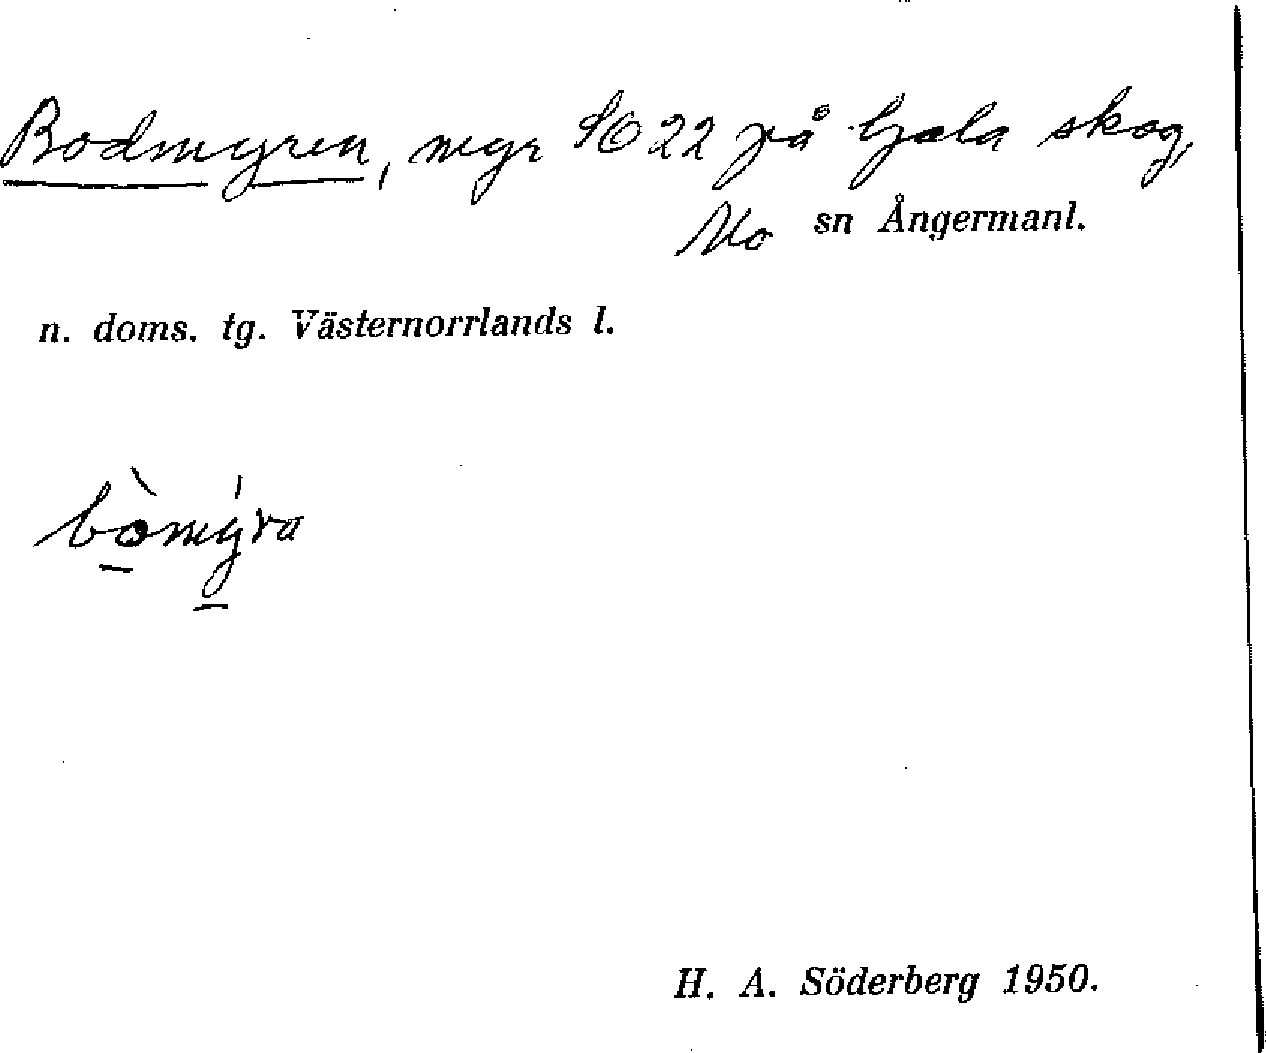 Bodmyren, myr SO 22 på Gala skog,
Mo sn Ångermanl.
n. doms. tg. Västernorrlands l.
bòmýra
H. A. Söderberg 1950.